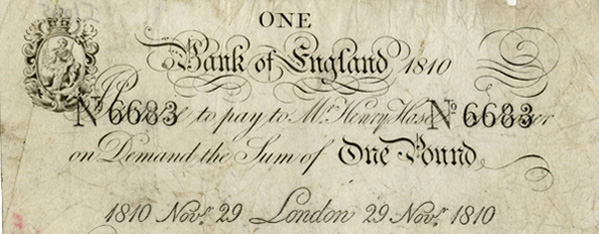 ONE
Bank of England 1810
No 6683 to pay to Mr. Henry Hase No 6683
on Demand the Sum of One Pound
1810 Novr. 29 London 29 Novr. 1810